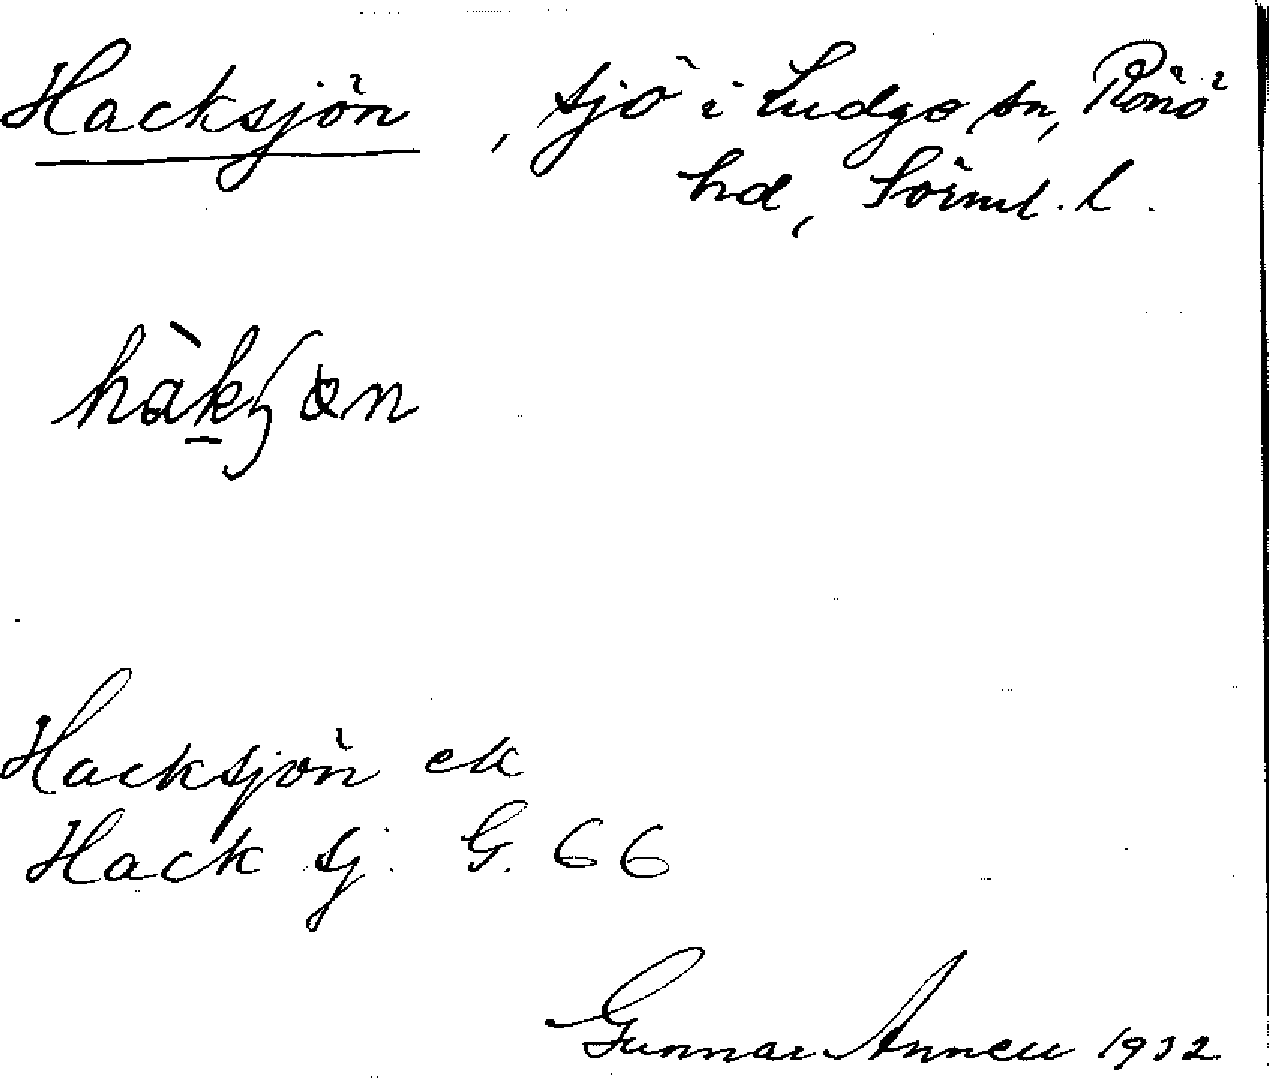 Hacksjön, sjö i Ludgo sn, Rönö
hd, Sörml. l.
hàkʃən
Hacksjön ek
Hack sj. G. 66
Gunnar 1932